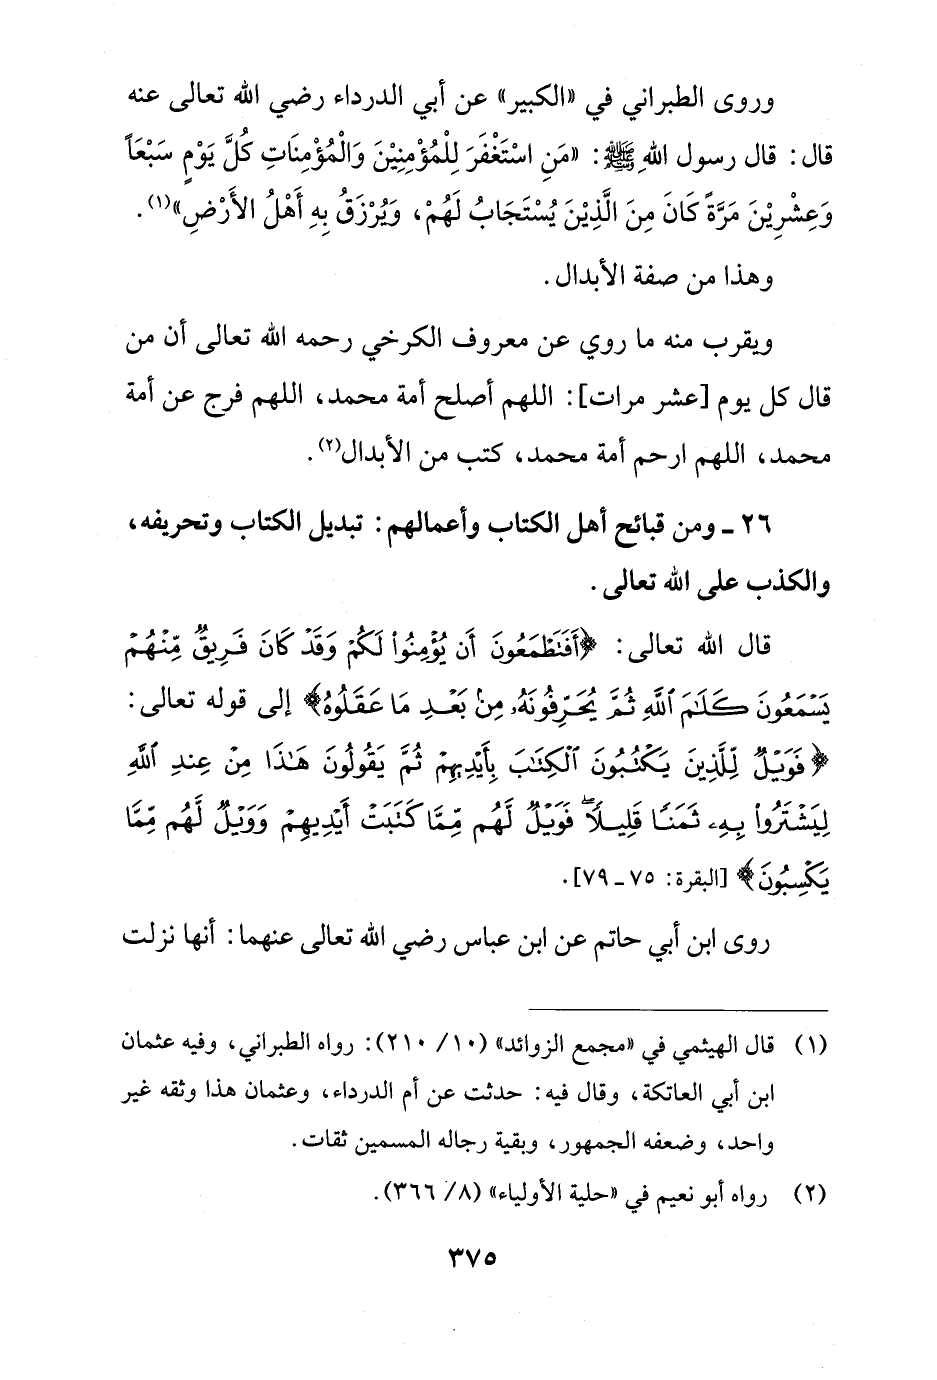 وروى الطبراني في «الكبير» عن أبي الدرداء رضي الله تعالى عنه
قال: قال رسول اللهِ ﷺ: «مَنِ اسْتَغْفَرَ لِلْمُؤْمِنِيْنَ وَالْمُؤْمِنَاتِ كُلَّ يَوْمٍ سَبْعَاً
وَعِشْرِيْنَ مَرَّةً كَانَ مِنَ الَّذِيْنَ يُسْتَجَابُ لَهُمْ، وَيُرْزَقُ بِهِ أَهْلُ الأَرْضِ»(١).
وهذا من صفة الأبدال.
ويقرب منه ما روي عن معروف الكرخي رحمه الله تعالى أن من
قال كل يوم [عشر مرات]: اللهم أصلح أمة محمد، اللهم فرج عن أمة
محمد، اللهم ارحم أمة محمد، كتب من الأبدال(٢).
٢٦ ـ ومن قبائح أهل الكتاب وأعمالهم: تبديل الكتاب وتحريفه،
والكذب على الله تعالى.
قال الله تعالى: ﴿أَفَتَطْمَعُونَ أَن يُؤْمِنُوا۟ لَكُمْ وَقَدْ كَانَ فَرِيقٌ مِّنْهُمْ
يَسْمَعُونَ كَلَٰمَ ٱللَّهِ ثُمَّ يُحَرِّفُونَهُۥ مِنۢ بَعْدِ مَا عَقَلُوهُ﴾ إلى قوله تعالى:
﴿فَوَيْلٌ لِّلَّذِينَ يَكْتُبُونَ ٱلْكِتَٰبَ بِأَيْدِيهِمْ ثُمَّ يَقُولُونَ هَٰذَا مِنْ عِندِ ٱللَّهِ
لِيَشْتَرُوا۟ بِهِۦ ثَمَنًا قَلِيلًا ۖ فَوَيْلٌ لَّهُم مِّمَّا كَتَبَتْ أَيْدِيهِمْ وَوَيْلٌ لَّهُم مِّمَّا
يَكْسِبُونَ﴾ [البقرة: ٧٥ ـ ٧٩].
روى ابن أبي حاتم عن ابن عباس رضي الله تعالى عنهما: أنها نزلت
(١) قال الهيثمي في «مجمع الزوائد» (١٠/ ٢١٠): رواه الطبراني، وفيه عثمان
ابن أبي العاتكة، وقال فيه: حدثت عن أم الدرداء، وعثمان هذا وثقه غير
واحد، وضعفه الجمهور، وبقية رجاله المسمين ثقات.
(٢) رواه أبو نعيم في «حلية الأولياء» (٨/ ٣٦٦).
٣٧٥